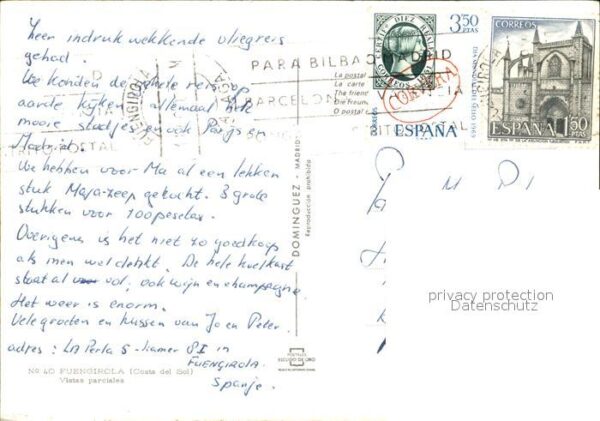 Zeer indrukwekkende vliegreis
gehad.
We konden de gehele reis op
aarde kijken, allemaal hele
mooie stadjes en ook Parijs en
Madrid.
We hebben voor Ma al een lekken
stuk Maja-zeep gekocht. 3 grote
stukken voor 100 pesetas.
Overigens is het niet zo goedkoop
als men wel denkt. De hele koelkast
staat al vol, ook wijn en champagne.
Het weer is enorm.
Vele groeten en kussen van Jo en Peter.
adres: LA Perla 5 - kamer 81 in
FUENGIROLA.
Spanje.
Nº 40 FUENGIROLA (Costa del Sol)
Vistas parciales
DOMINGUEZ - MADRID
Reproducción prohibida
POSTALES
ESCUDO DE ORO
PARA BILBAO MADRID
BARCELONA
FUENGIROLA
La postal
La carte
The friend
Die freun
O postal
CORREOS
DIEZ REALES
3,50
PTAS
CORREOS
ESPAÑA
CORREOS
ESPAÑA 1,50
PTAS
privacy protection
Datenschutz